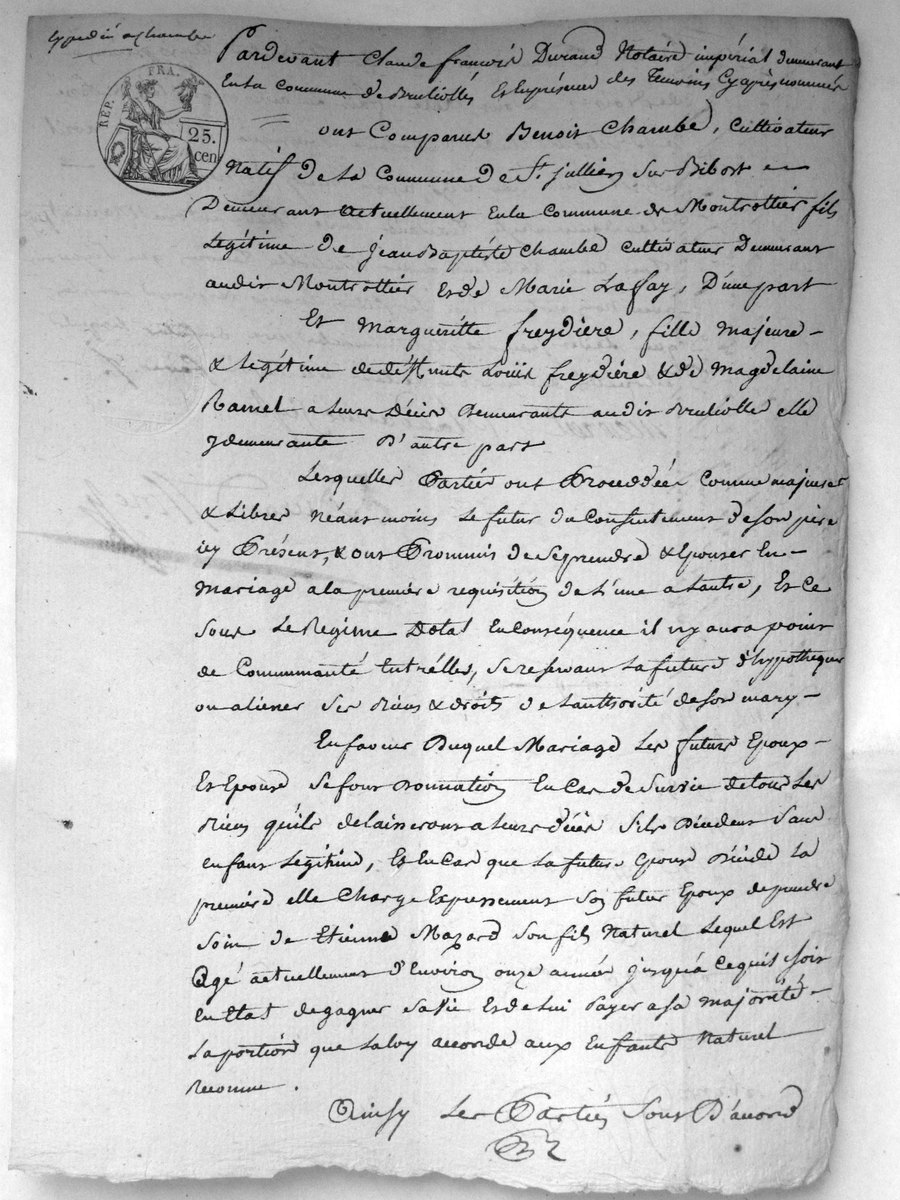 expedié a chambe
RÉP. FRA.
25.
cen
Pardevant Claude françois Durand Notaire impérial demeurant
En la Commune de Brullolles Et En présence des Temoins Cy après nommés
ont Comparus Benoit Chambe, Cultivateur
Natif De La Commune De St. jullien Sur Bibost
Demeurant actuellement En la Commune de Montrottier fils
Legitime De jean Baptiste Chambe Cultivateur Demeurant
audit Montrottier Et de Marie Lafay, D'une part
Et Margueritte freydiere, fille majeure
& Legitime de deffunts Louis freydiére & de Magdelaine
Ramel a Leurs Décès Demeurants audit Brullolle elle
y demeurante D'autre part
Lesquelles Parties ont Proceddées Comme majeures
& Libres Néant moins Le futur du Consentement de son père
icy Présent, & ont Prommis de Se prendre & Epouser En
mariage a la première requisition de L'une a Lautre, Et Ce
Sous Le Regime Dotal En Conséquence il ny aura point
de Communnauté Entrélles, Se reservant La future d'hypothequer
ou aliener Ses Biens & droits de Lauthorité de son mary
En faveur Duquel Mariage Les futurs Epoux
Et Epouse Se font Donnation En Cas de Survie de tous Les
Biens qu'ils delaisseront a Leurs décès Sils Décedent Sans
enfant Legitime, Et En Cas que La future Epouse Décéde La
première elle Charge Expressement Son futur Epoux de prendre
Soin de Etienne Mazard Son fils Naturel Lequel Est
Agé actuellement d'Environ onze année jusqu'à Ce quil Soit
En Etat de gagner Sa Vie Et de Lui Payer a Sa majorité
La portion que La loy accorde aux Enfants Naturel
reconnu.
Ainsy Les Parties Sont D'accord